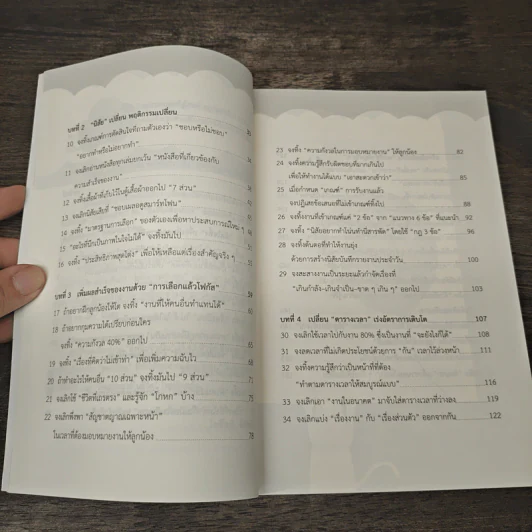 บทที่ 2 "นิสัย" เปลี่ยน พฤติกรรมเปลี่ยน
10 จงทิ้งเกณฑ์การตัดสินใจที่ถามตัวเองว่า "ชอบหรือไม่ชอบ"
"อยากทำหรือไม่อยากทำ"
11 จงเลิกอ่านหนังสือทุกเล่มยกเว้น "หนังสือที่เกี่ยวข้องกับ
ความสำเร็จของงาน"
12 จงทิ้งเสื้อผ้าที่เก็บไว้ในตู้เสื้อผ้าออกไป "7 ส่วน"
13 จงเลิกนิสัยเสียที่ "ชอบเผลอดูสมาร์ทโฟน"
14 จงทิ้ง "มาตรฐานการเลือก" ของตัวเองเพื่อหาประสบการณ์ใหม่ ๆ
15 "สลไลฟ์นึกเป็นภาพในใจไม่ได้" จงทิ้งมันไป
16 จงทิ้ง "ประสิทธิภาพสุดโต่ง" เพื่อให้เหลือแต่เรื่องสำคัญจริง ๆ
บทที่ 3 เพิ่มผลสำเร็จของงานด้วย "การเลือกแล้วโฟกัส" 59
17 ถ้าอยากฝึกลูกน้องให้โต จงทิ้ง "งานที่ให้คนอื่นทำแทนได้"
18 ถ้าอยากกุมความได้เปรียบก่อนใคร
จงทิ้ง "ความกังวล 40%" ออกไป 65
19 จงทิ้ง "เรื่องยังคิดว่าไม่เข้าท่า" เพื่อเพิ่มความฉับไว 68
20 ถ้าทำอะไรให้คนอื่น "10 ส่วน" จงทิ้งมันไป "9 ส่วน" 71
21 จงเลิกใช้ "ชีวิตที่เถรตรง" และรู้จัก "โกหก" บ้าง 75
22 จงเลิกพึ่งพา "สัญชาตญาณเฉพาะหน้า"
ในเวลาที่ต้องมอบหมายงานให้ลูกน้อง 78
23 จงทิ้ง "ความกังวลในการมอบหมายงาน" ให้ลูกน้อง 82
24 จงทิ้งความรู้สึกรับผิดชอบที่มากเกินไป
เพื่อให้ทำงานได้แบบ "เอาสะดวกเข้าว่า" 85
25 เมื่อกำหนด "เกณฑ์" การรับงานแล้ว
จงปฏิเสธข้อเสนอที่ไม่เข้าเกณฑ์ทิ้งไป 88
26 จงทิ้งงานที่เข้าเกณฑ์แค่ "2 ข้อ" จาก "แนวทาง 6 ข้อ" ที่แนะนำ 92
27 จงทิ้ง "นิสัยอยากทำโน่นทำนี่สารพัด" โดยใช้ "กฎ 3 ข้อ" 96
28 จงทิ้งต้นตอที่ทำให้งานยุ่ง
ด้วยการสร้างนิสัยบันทึกรายงานประจำวัน 100
29 จงสะสางงานเป็นระยะแล้วกำจัดเรื่อง
"เกินกำลัง-เกินจำเป็น-ขาด ๆ เกิน ๆ" ออกไป 103
บทที่ 4 เปลี่ยน "ตารางเวลา" เร่งอัตราการเติบโต 107
30 จงเลิกใช้เวลาไปกับงาน 80% ซึ่งเป็นงานที่ "จะยังไงก็ได้" 108
31 จงลดเวลาที่ไม่เกิดประโยชน์ด้วยการ "กัน" เวลาไว้ล่วงหน้า 111
32 จงทิ้งความรู้สึกว่าเป็นหน้าที่ที่ต้อง
"ทำตามตารางเวลาให้สมบูรณ์แบบ" 116
33 จงเลิกเอา "งานในอนาคต" มาจับใส่ตารางเวลาที่ว่างลง 119
34 จงเลิกแบ่ง "เรื่องงาน" กับ "เรื่องส่วนตัว" ออกจากกัน 122